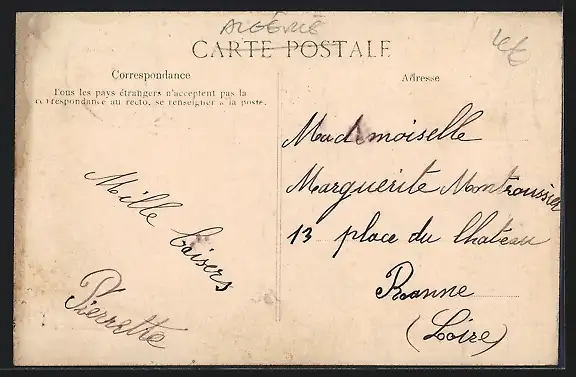 ALGÉRIE
CARTE POSTALE
4€
Correspondance
Tous les pays étrangers n'acceptent pas la
correspondance au recto, se renseigner à la poste.
Adresse
Mille baisers
Pierrette
Mademoiselle
Marguerite Montroussier
13 place du Chateau
Roanne
(Loire)